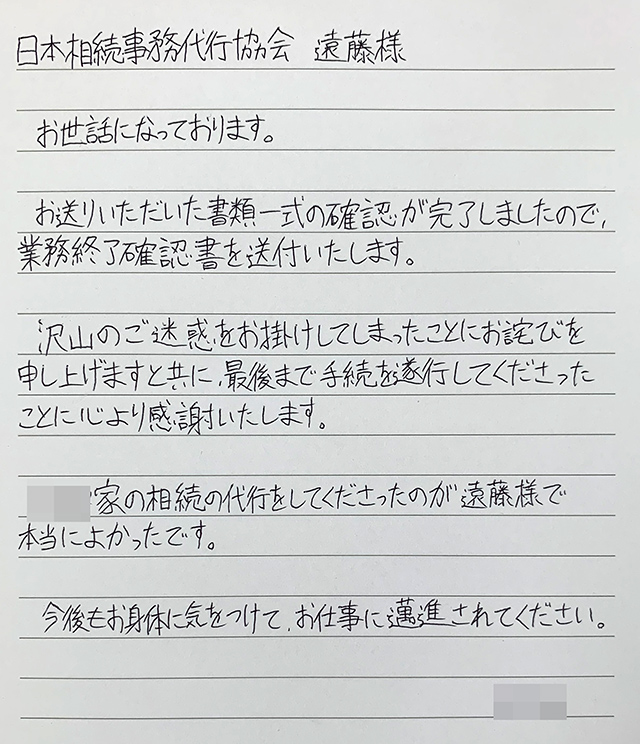 日本相続事務代行協会 遠藤様
お世話になっております。
お送りいただいた書類一式の確認が完了しましたので、
業務終了確認書を送付いたします。
沢山のご迷惑をお掛けしてしまったことにお詫びを
申し上げますと共に、最後まで手続を遂行してくださった
ことに心より感謝いたします。
家の相続の代行をしてくださったのが遠藤様で
本当によかったです。
今後もお身体に気をつけて、お仕事に邁進されてください。